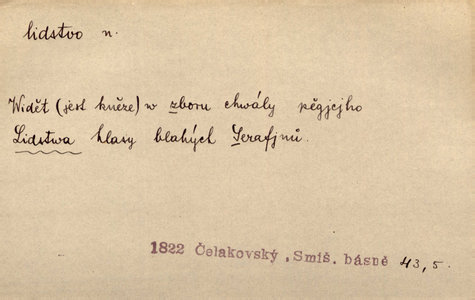 lidstvo n.
Widět (jest kněze) w zboru chwály pěgjcjho
Lidstwa hlasy blahých Serafjnů.
1822 Čelakovský, Smíš. básně 43, 5.